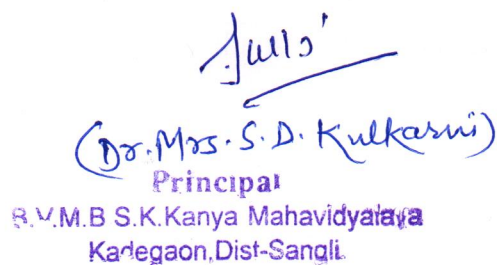 (Dr. Mrs. S. D. Kulkarni)
Principal
B.V.M.B S.K.Kanya Mahavidyalaya
Kadegaon, Dist-Sangli.